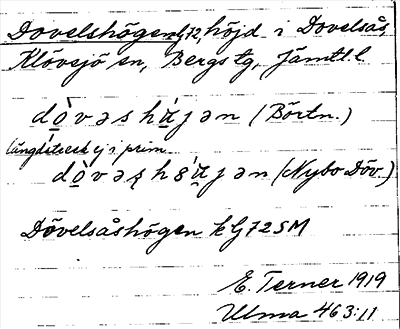 Dovelshögen kG72, höjd i Dovelsås,
Klövsjö sn, Bergs tg, Jämtl. l.
dòvəshu̇jən (Börtn.)
långdstreck ej i prim.
dòvəshöu̇jən (Nybo Döv.)
Dövelsåshögen kG72SM
E. Terner 1919
Ulma 463:11